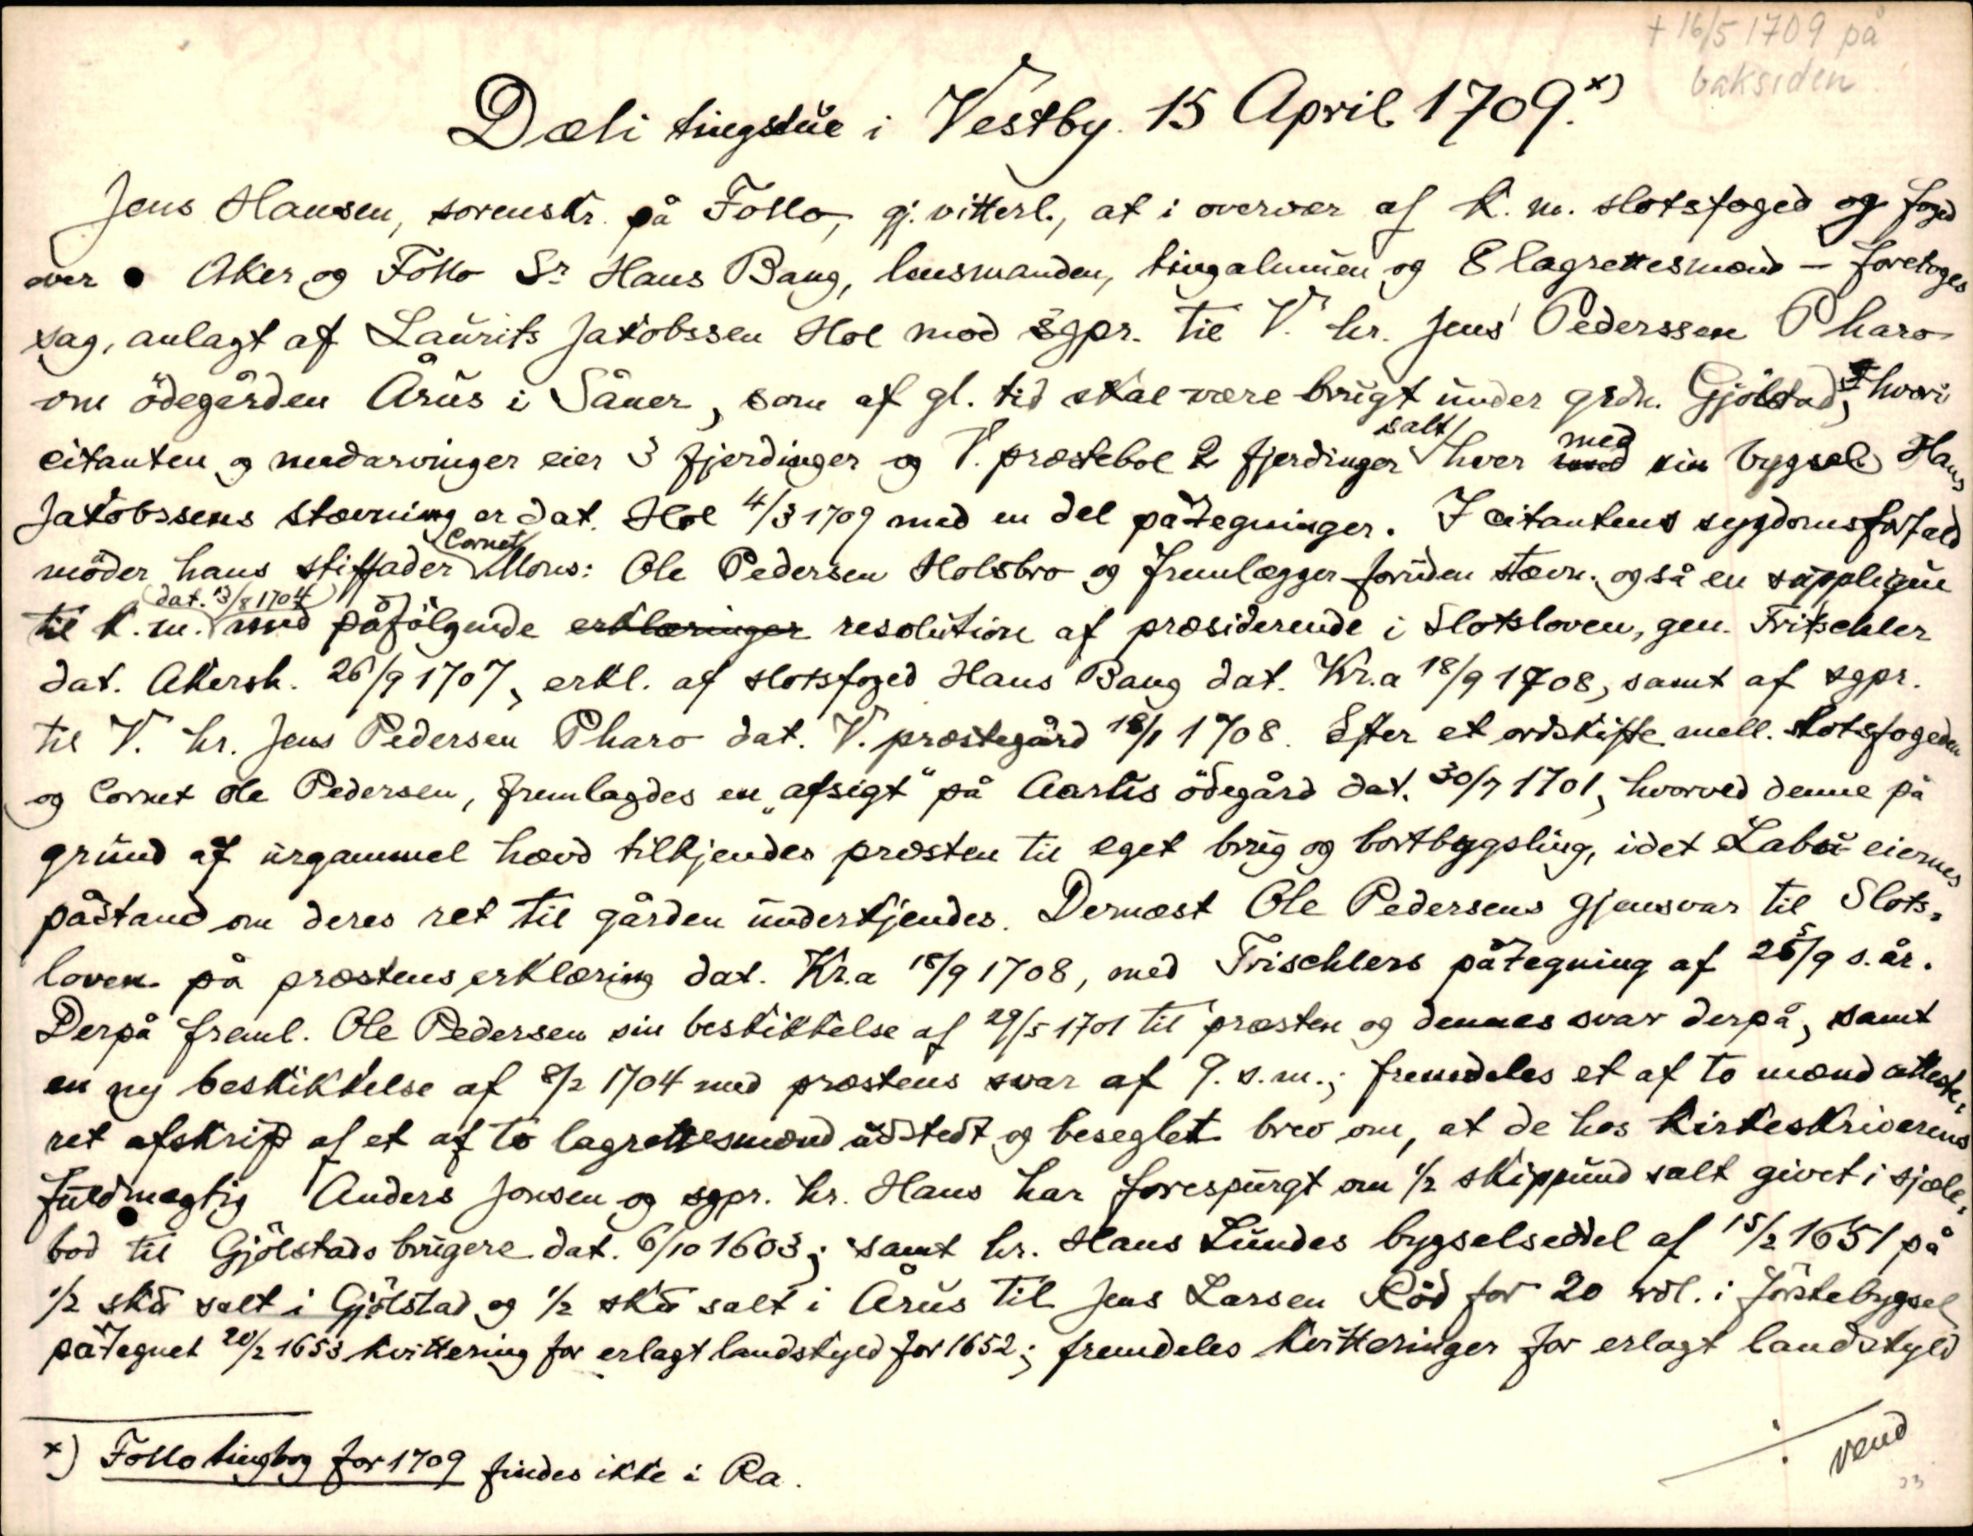 + 16/5 1709 på
baksiden.
Dæli tingstue i Vestby. 15 April 1709.x)
Jens Hansen, sorenskr. på Follo, gj. vitterl., at i overvær af K. m. slotsfoged og foged
over Aker og Follo Sr Hans Bang, lensmanden, tingalmuen og 8 lagrettesmænd – foretoges
sag, anlagt af Laurits Jakobssen Hol mod sgpr. til V. hr. Jens Pederssen Pharo
om ödegården Årus i Såner, som af gl. tid skal være brugt under grdn. Gjölstad, hvori
citanten og medarvinger eier 3 fjerdinger og V. præstebol 2 fjerdinger salt hver med sin bygsel. Hans
Jakobssens stævning er dat. Hol 4/3 1709 med en del påtegninger. I citantens sygdomsforfald
möder hans stiffader Cornet Mons: Ole Pedersen Holsbro og fremlægger foruden stævn. også en supplique
til K. m. dat. 13/8 1704 med påfölgende erklæringer resolution af præsiderende i Slotsloven, gen. Tritschler
dat. Akersh. 26/9 1707, erkl. af slotsfoged Hans Bang dat. Kr.a 18/9 1708, samt af sgpr.
til V. hr. Jens Pedersen Pharo dat. V. præstegård 18/1 1708. Efter et ordskifte mell. slotsfogeden
og Cornet Ole Pedersen, fremlagdes en „afsigt“ på Aarus ödegård dat. 30/7 1701, hvorved denne på
grund af urgammel hævd tilkjendes præsten til eget brug og bortbygsling, idet Labu eiernes
påstand om deres ret til gården underkjendes. Dernæst Ole Pedersens gjensvar til Slots-
loven på præstens erklæring dat. Kr.a 18/9 1708, med Trischlers påtegning af 25/9 s. år.
Derpå freml. Ole Pedersen sin beskikkelse af 29/5 1701 til præsten og dennes svar derpå, samt
en ny beskikkelse af 8/2 1704 med præstens svar af 9. s. m.; fremdeles et af to mænd atteste-
ret afskrift af et af to lagrettesmænd udstedt og beseglet brev om, at de hos Kirkeskriverens
fuldmægtig Anders Jonsen og sgpr. hr. Hans har forespurgt om 1/2 skippund salt givet i sjæle-
bod til Gjölstads brugere dat. 6/10 1603; samt hr. Hans Lundes bygselseddel af 15/2 1651 på
1/2 sk℔ salt i Gjölstad og 1/2 sk℔ salt i Årus til Jens Larsen Röd for 20 rdl. i förstebygsel
påtegnet 20/2 1653 kvittering for erlagt landskyld for 1652; fremdeles kvitteringer for erlagt landskyld
x) Follo tingbog for 1709 findes ikke i Ra.
vend
23